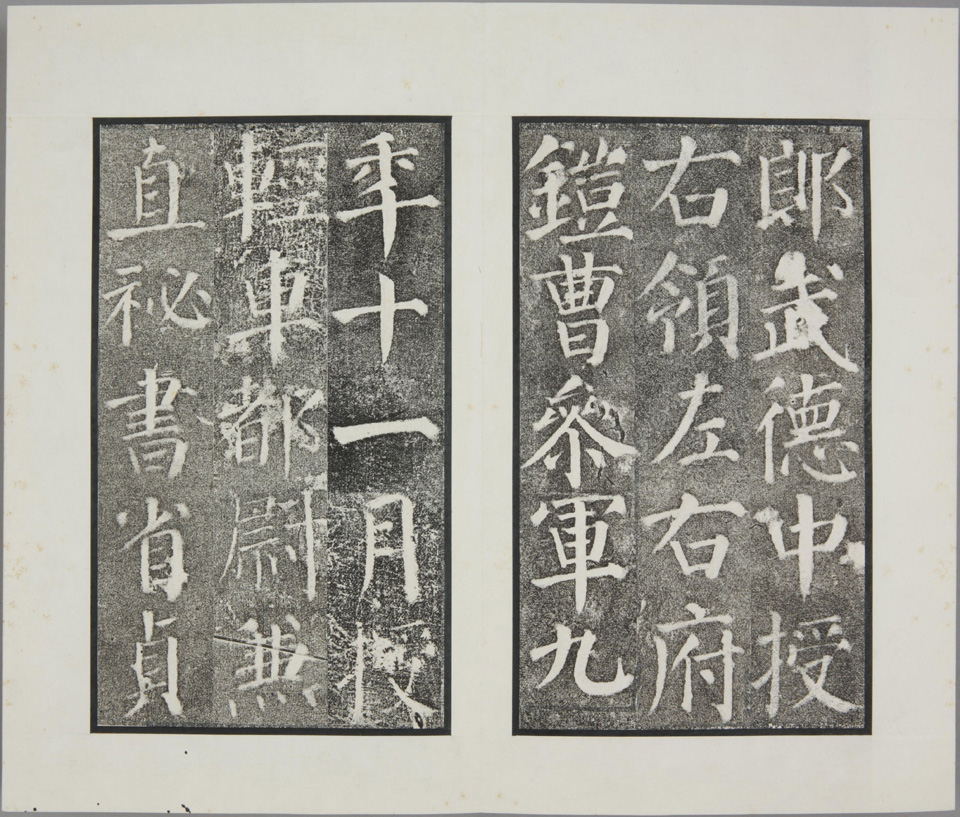 郎武德中授
右領左右府
鎧曹參軍九
年十一月授
輕車都尉兼
直祕書省貞